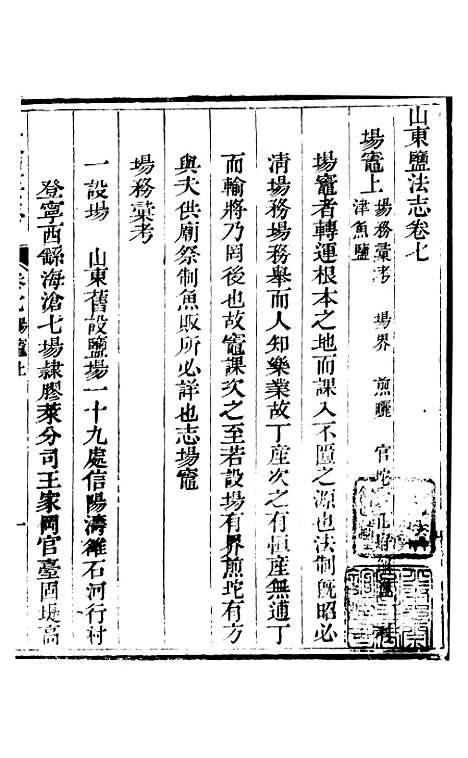 山東鹽法志卷七
場竈上 場務彙考 場界 煎曬 官坨
津魚鹽
場竈者轉運根本之地而課入不匱之源也法制旣昭必
清場場務舉而人知樂業故丁產次之有恒產無逋丁
而輸將乃罔後也故竈課次之至若設場有界煎坨有方
與夫供廟祭制魚販所必詳也志場竈
場務彙考
一設場 山東舊設鹽場一十九處信陽濤雒石河行村
登寧西繇海滄七場隸膠萊分司王家岡官臺固堤高
卷七場竈上
一